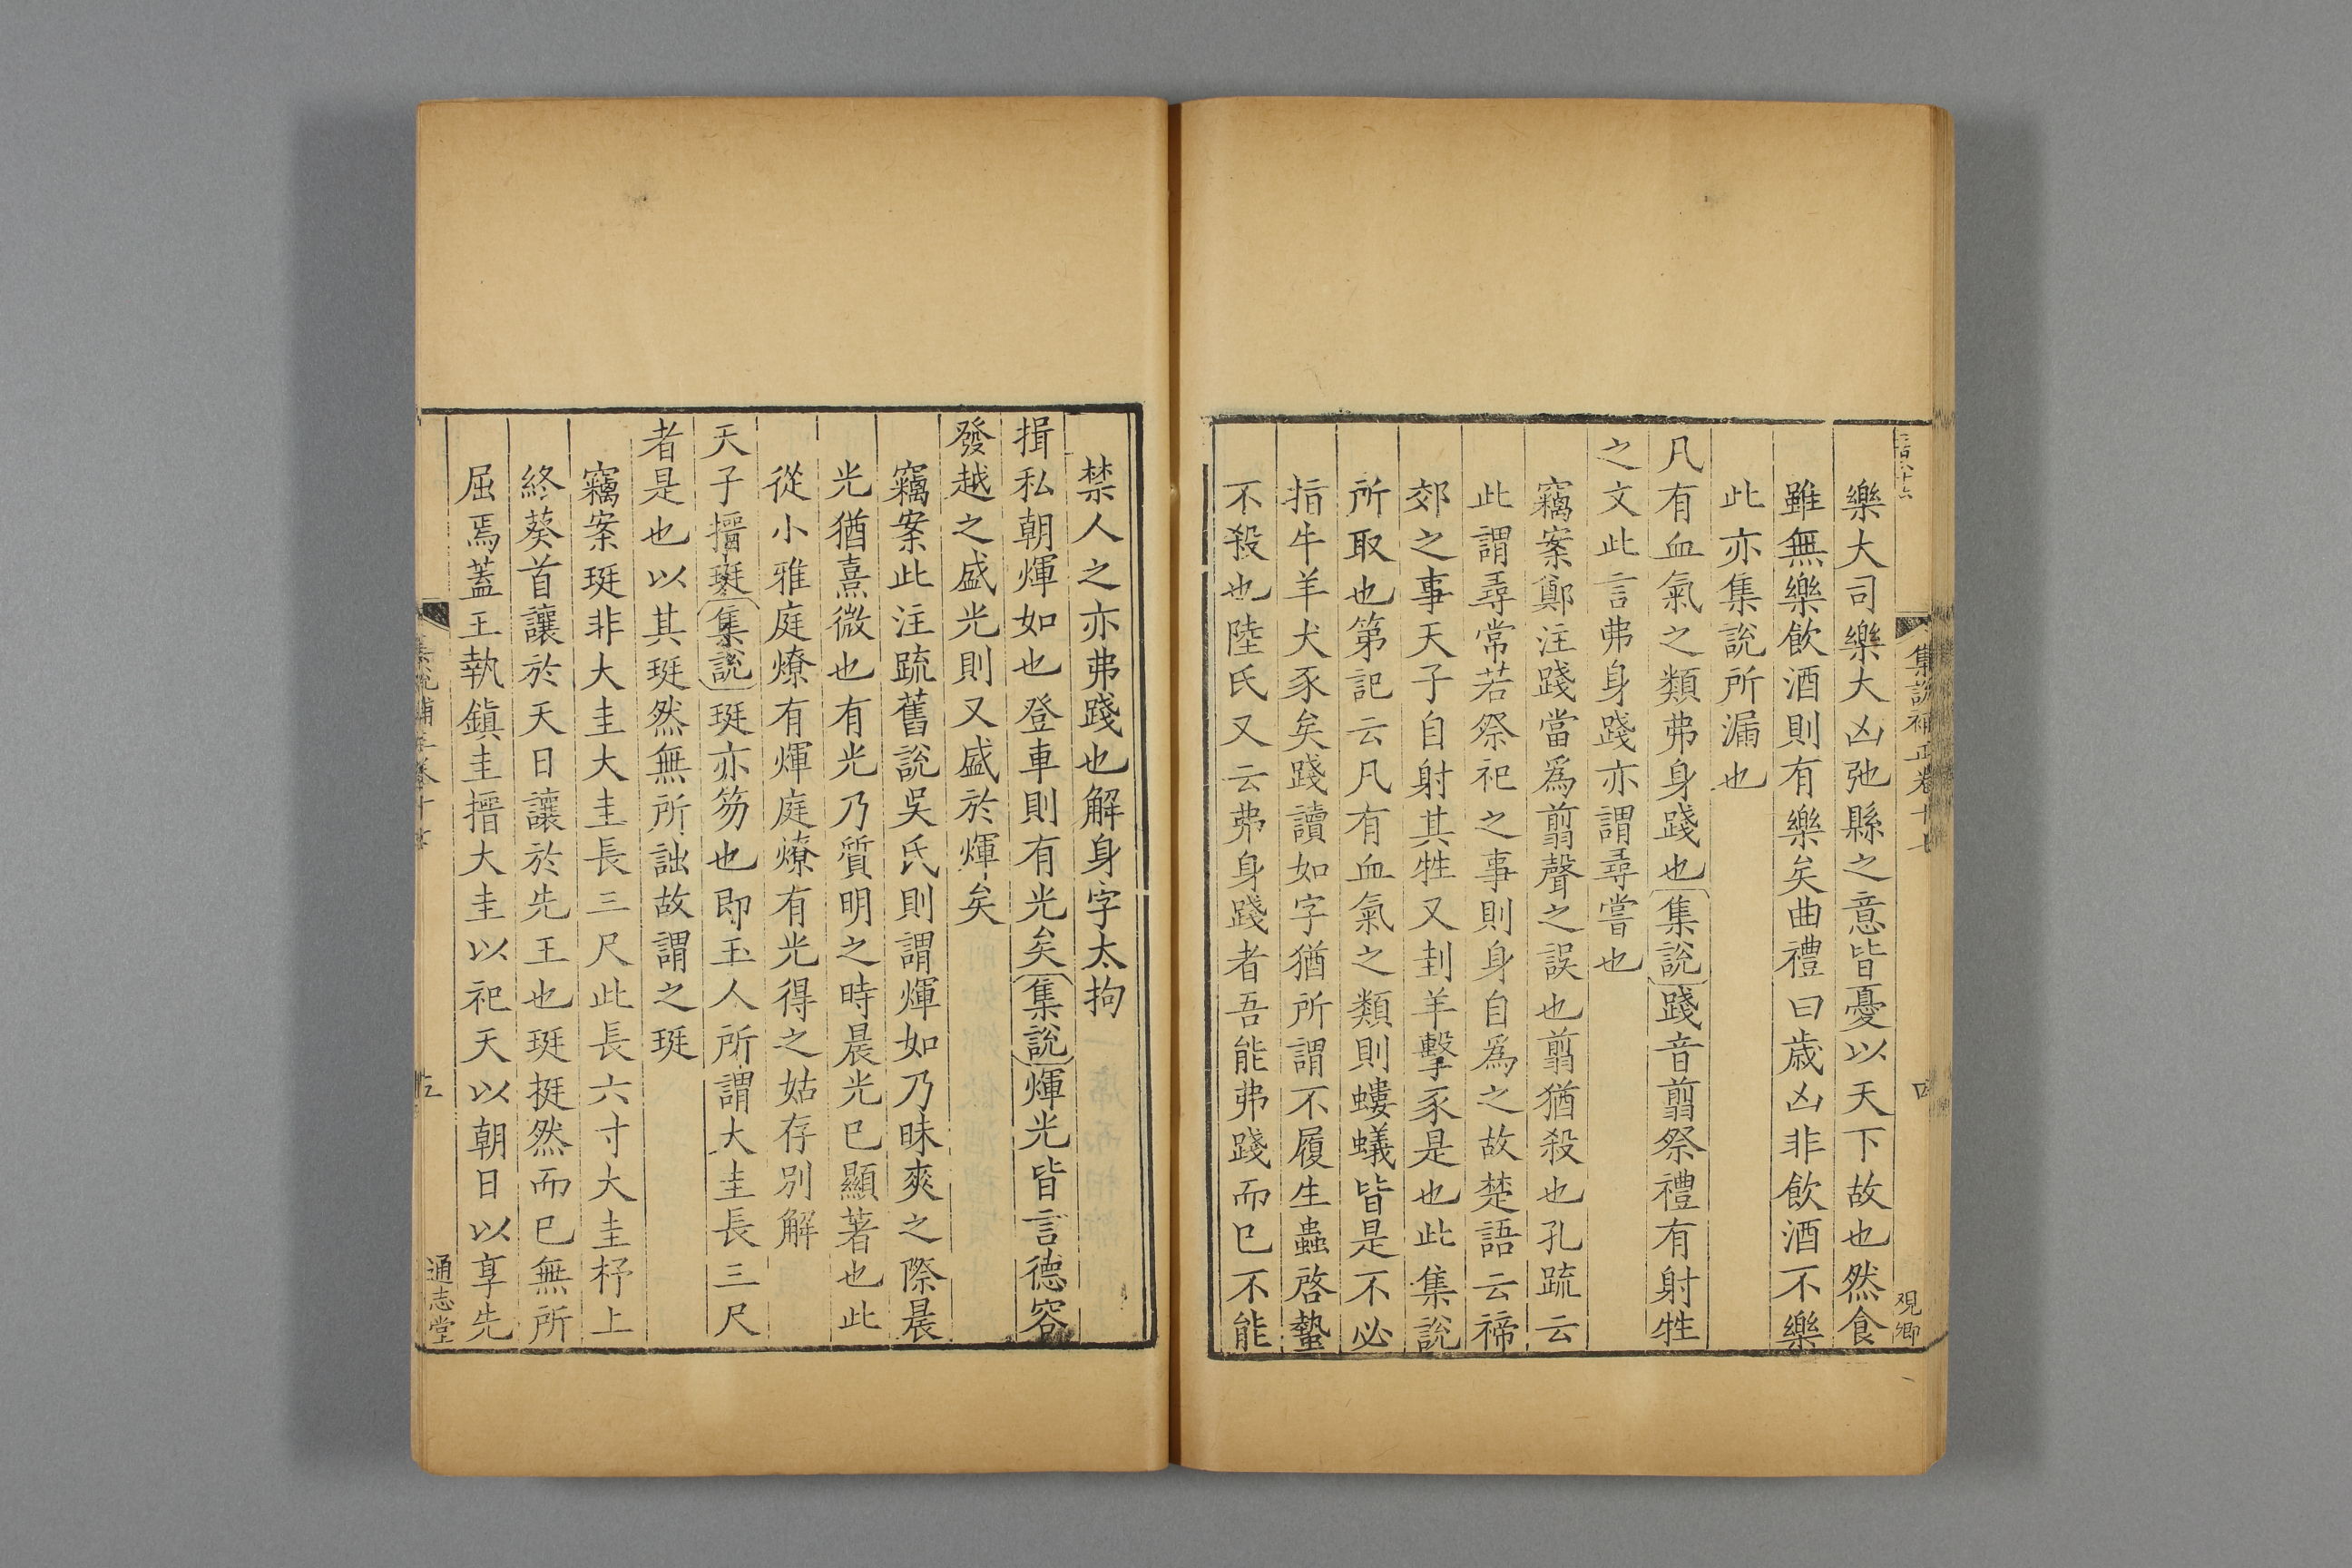 樂大司樂大凶弛縣之意皆憂以天下故也然食
雖無樂飲酒則有樂矣曲禮曰歳凶非飲酒不樂
此亦集說所漏也
凡有血氣之類弗身踐也集說踐音翦祭禮有射牲
之文此言弗身踐亦謂尋嘗也
竊案鄭注踐當爲翦聲之誤也翦猶殺也孔疏云
此謂尋常若祭祀之事則身自爲之故楚語云禘
郊之事天子自射其牲又刲羊擊豕是也此集說
所取也第記云凡有血氣之類則螻蟻皆是不必
指牛羊犬豕矣踐讀如字猶所謂不履生蟲啓蟄
不殺也陸氏又云弗身踐者吾能弗踐而已不能
集說補正卷十七
四
觀卿
禁人之亦弗踐也解身字太拘
揖私朝煇如也登車則有光矣集說煇光皆言德容
發越之盛光則又盛於煇矣
竊案此注疏舊說吳氏則謂煇如乃昧爽之際晨
光猶熹微也有光乃質明之時晨光已顯著也此
從小雅庭燎有煇庭燎有光得之姑存別解
天子搢珽集說珽亦笏也即玉人所謂大圭長三尺
者是也以其珽然無所詘故謂之珽
竊案珽非大圭大圭長三尺此長六寸大圭杼上
終葵首讓於天日讓於先王也珽挺然而已無所
屈焉蓋王執鎮圭搢大圭以祀天以朝日以享先
通志堂